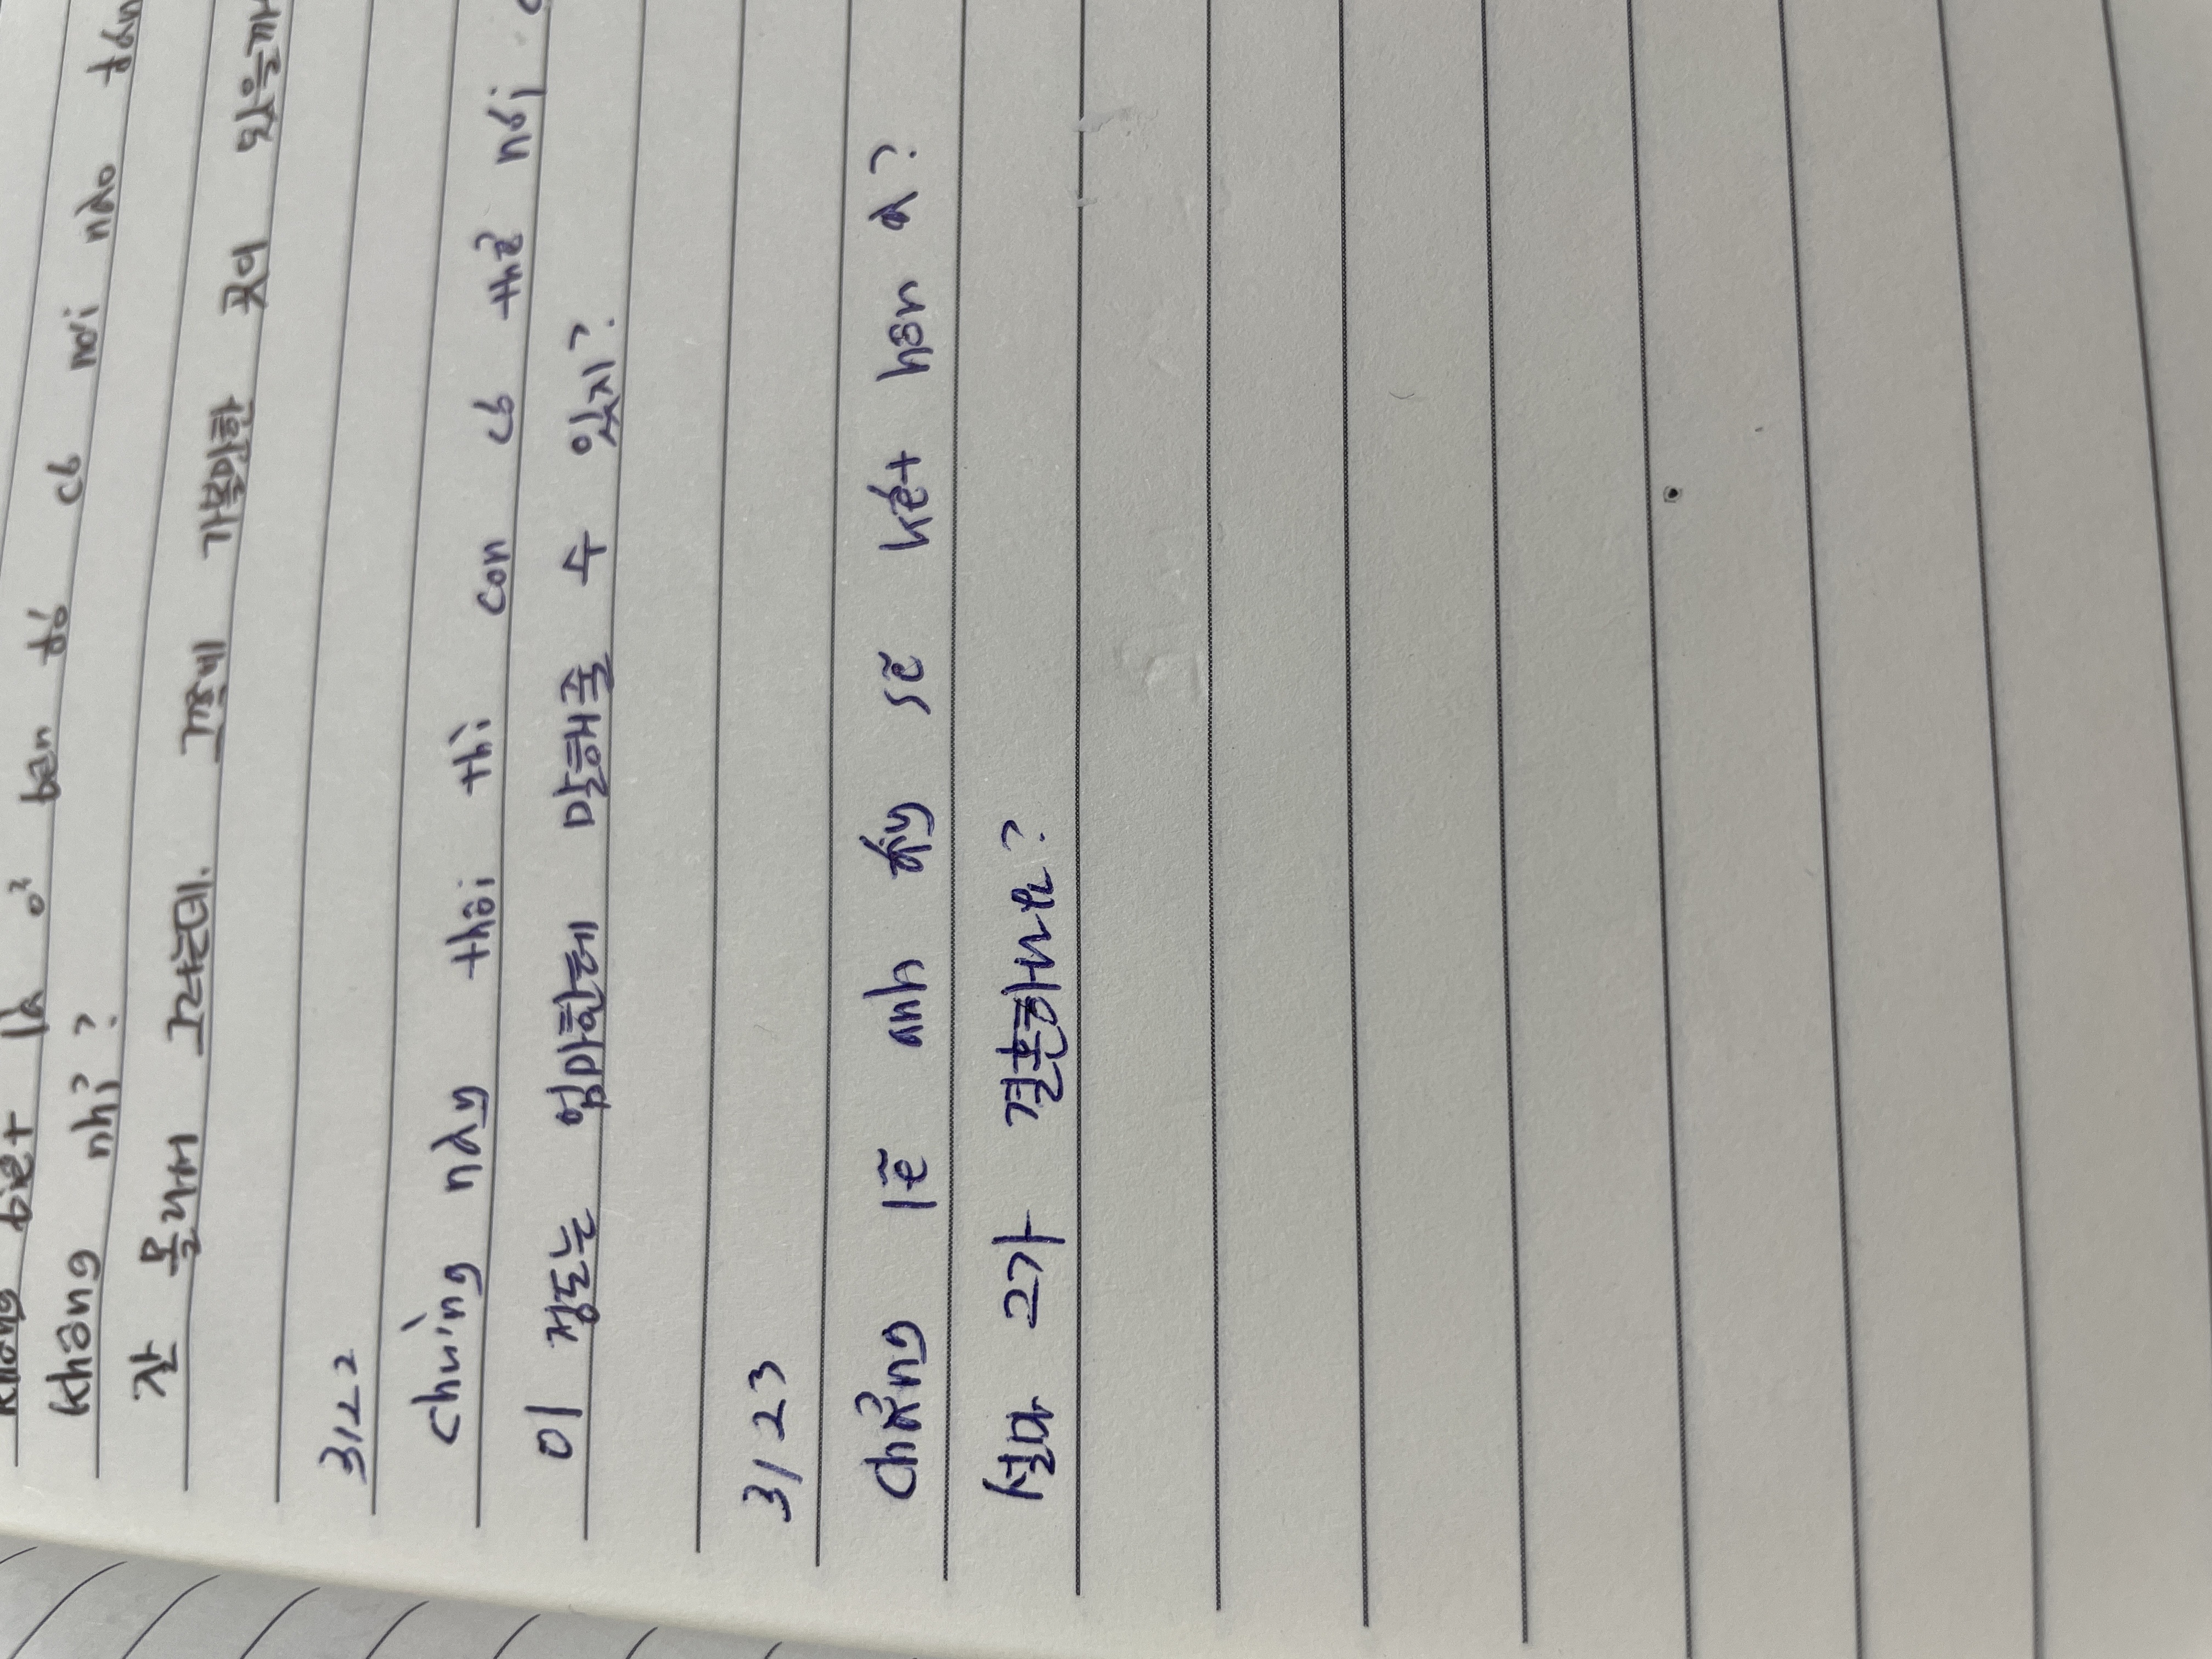 biết là ở bên đó có nơi nào
không nhỉ?
잘 몰라서 그러는데. 그쪽에 가볼만한 곳이 있을까
3/22
chừng này thôi thì con có thể nói
이 정도는 엄마한테 말해줄 수 있지?
3/23
chẳng lẽ anh ấy sẽ kết hôn à?
설마 그가 결혼하나요?